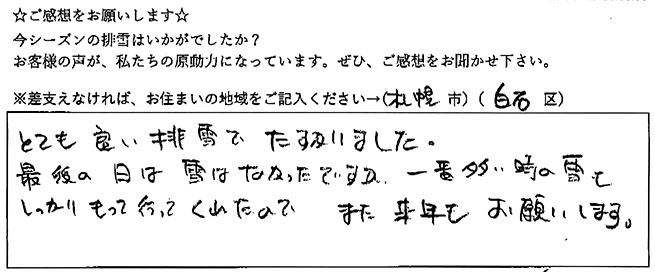 ☆ご感想をお願いします☆
今シーズンの排雪はいかがでしたか？
お客様の声が、私たちの原動力になっています。ぜひ、ご感想をお聞かせ下さい。
※差支えなければ、お住まいの地域をご記入ください→(札幌 市) ( 白石 区)
とても良い排雪で たすかりました。
最後の日は 雪はなかったですが、一番多い時の雪も
しっかりもって行ってくれたので また来年もお願いします。